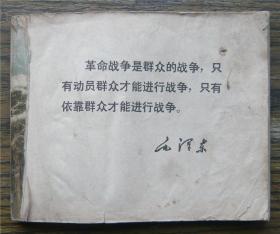 革命战争是群众的战争，只
有动员群众才能进行战争，只有
依靠群众才能进行战争。
毛泽东